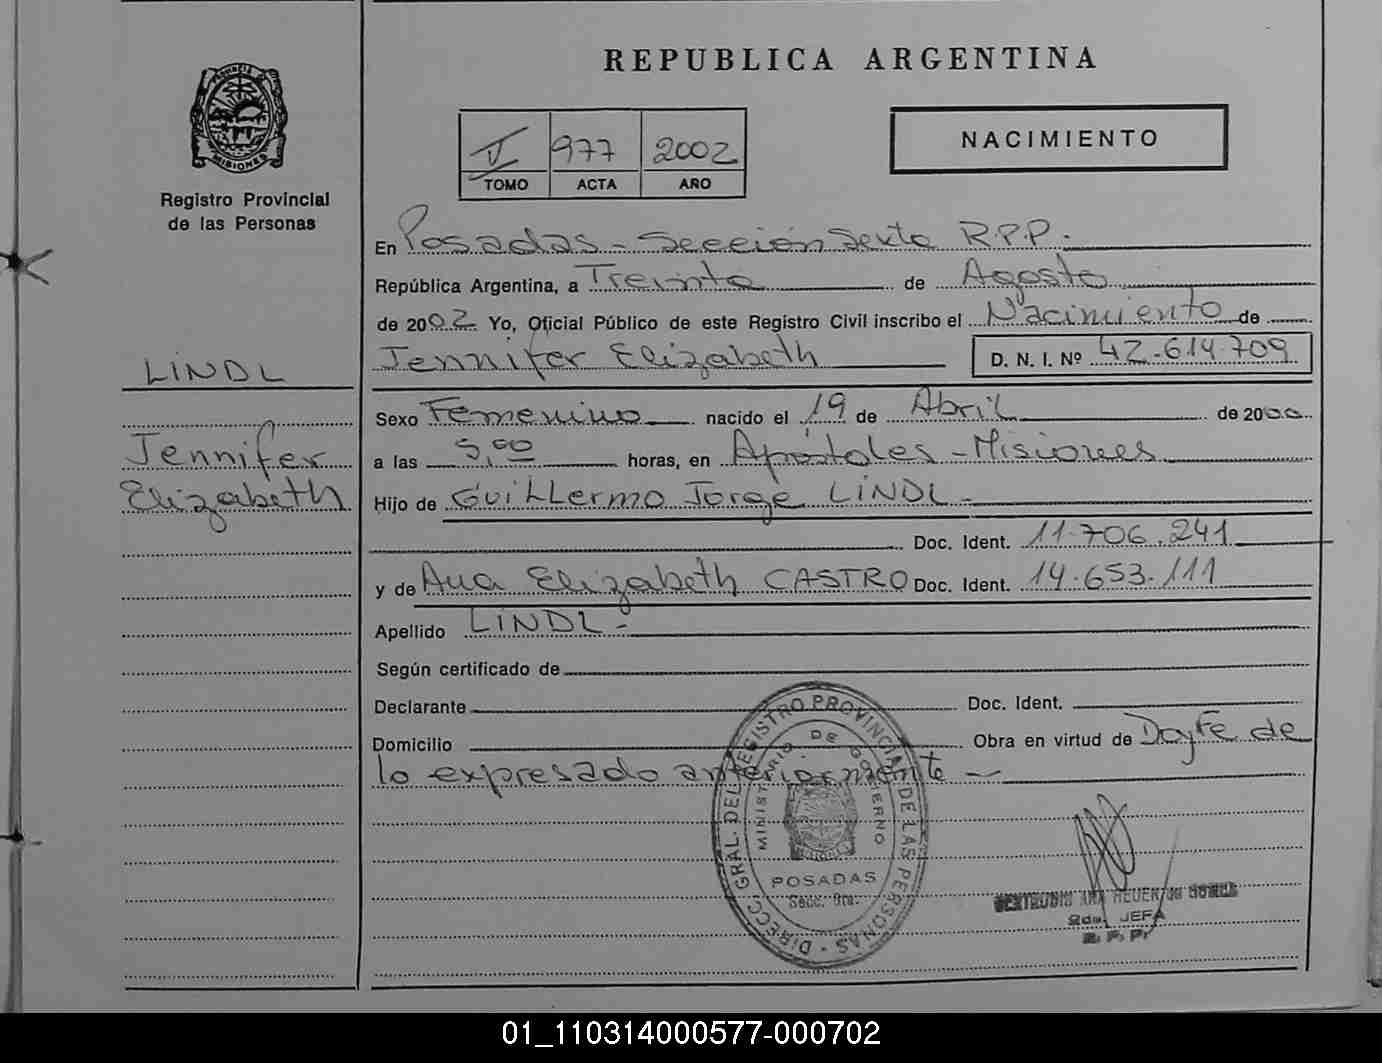 REPUBLICA ARGENTINA
PROVINCIA DE
MISIONES
Registro Provincial
de las Personas
V 977 2002
TOMO ACTA AÑO
NACIMIENTO
En Posadas - Sección Sexta R.P.P.
República Argentina, a Treinta de Agosto
de 2002 Yo, Oficial Público de este Registro Civil inscribo el Nacimiento de
Jennifer Elizabeth D. N. I. Nº 42.614.709
LINDL
Jennifer
Elizabeth
Sexo Femenino nacido el 19 de Abril de 2000
a las 5,00 horas, en Apóstoles - Misiones
Hijo de Guillermo Jorge LINDL -
Doc. Ident. 11.706.241
y de Ana Elizabeth CASTRO Doc. Ident. 14.653.111
Apellido LINDL -
Según certificado de
Declarante Doc. Ident.
Domicilio Obra en virtud de Doy Fe de
lo expresado anteriormente -
DIRECC. GRAL. DEL REGISTRO PROVINCIAL DE LAS PERSONAS
MINISTERIO DE GOBIERNO
POSADAS
Secc.
JEFA
R. P. P.
01_110314000577-000702